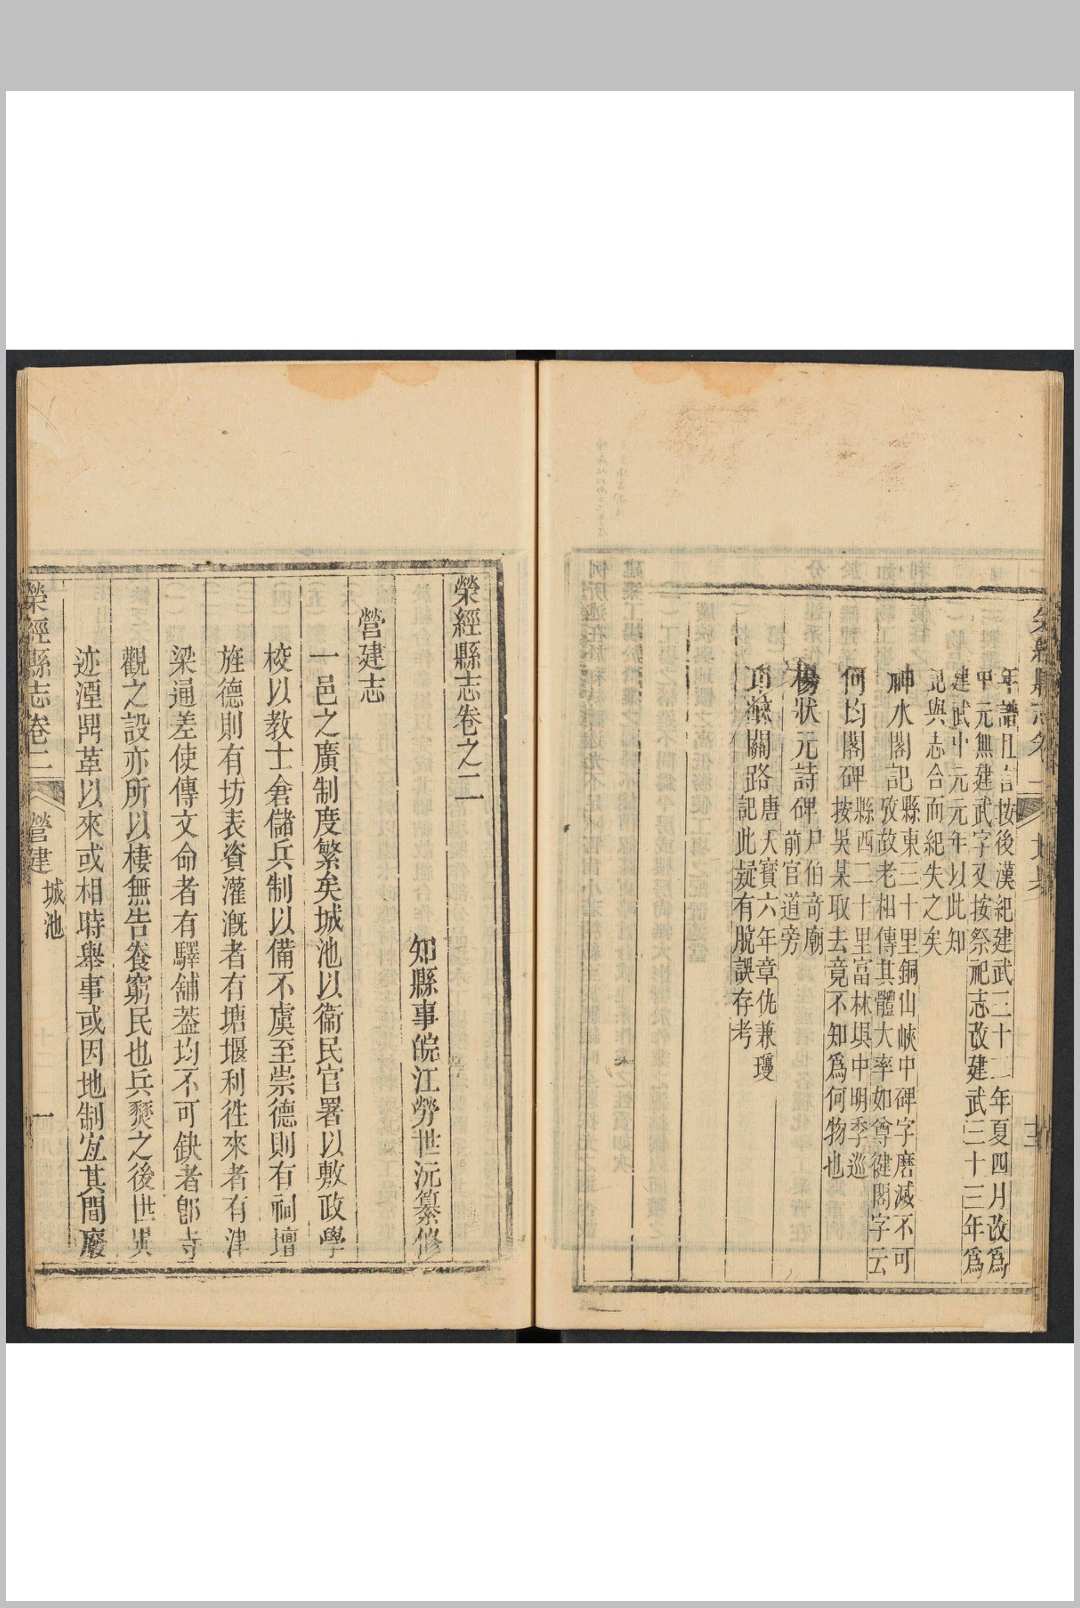 年譜且言按後漢紀建武三十二年夏四月改為
中元無建武字又按祭祀志改建武三十三年為
建武中元元年以此知
記與志合而紀失之矣
神水閣記縣東三十里銅山峽中碑字磨滅不可
攷故老相傳其體大率如尊楗閣字云
何均閣碑縣西二十里富林埧中明季巡
按吳某取去竟不知爲何物也
楊狀元詩碑尸伯奇廟
前官道旁
關路記唐天寶六年章仇兼瓊
此疑有脫誤存考
榮經縣志卷之二
知縣事皖江勞世沅纂修
營建志
一邑之廣制度繁矣城池以衞民官署以敷政學
校以教士倉儲兵制以備不虞至崇德則有祠壇
旌德則有坊表資灌漑者有塘堰利徃來者有津
梁通差使傳文命者有驛舖葢均不可缺者卽寺
觀之設亦所以棲無告飬窮民也兵燹之後世異
迹湮鼎革以來或相時舉事或因地制宜其間廢
榮經縣志卷二
營建
城池
一